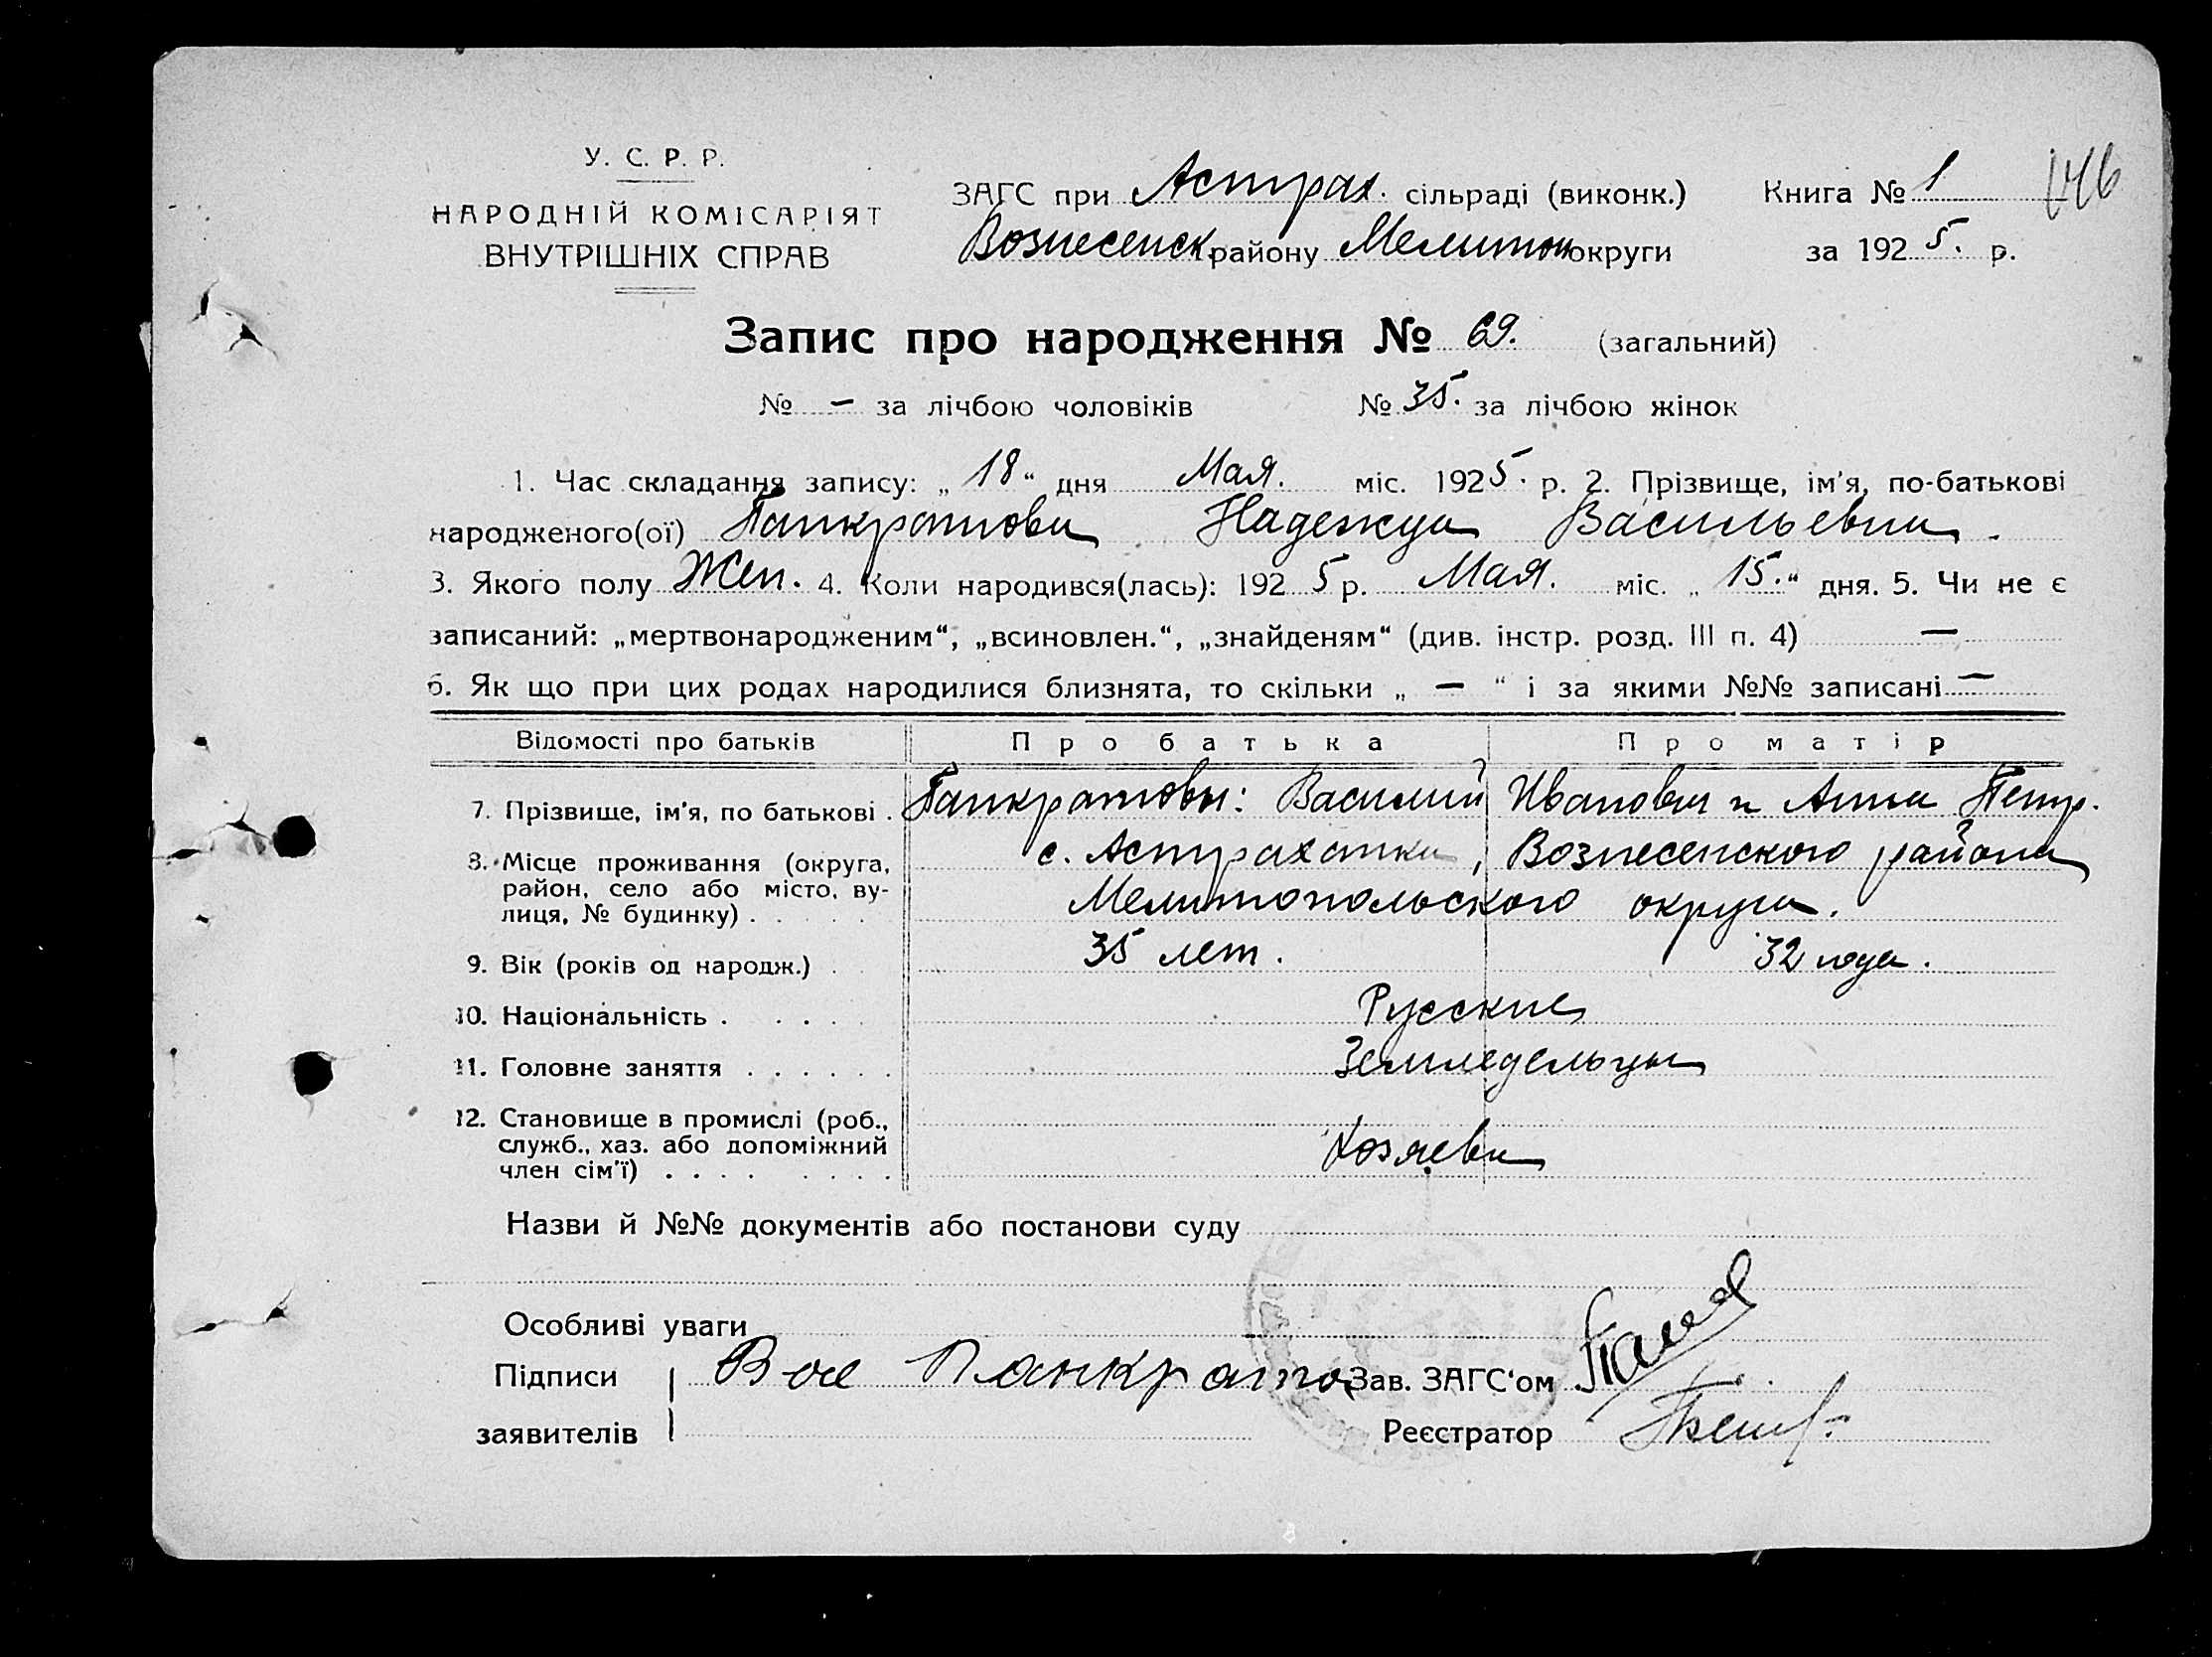 У. С. Р. Р.
НАРОДНІЙ КОМІСАРІЯТ
ВНУТРІШНІХ СПРАВ
ЗАГС при Астрах. сільраді (виконк.) Книга № 1 146
Вознесенск району Мелитоп округи за 1925. р.
Запис про народження № 69. (загальний)
№ — за лічбою чоловіків № 35. за лічбою жінок
1. Час складання запису: „18“ дня Мая. міс. 1925. р. 2. Прізвище, ім'я, по-батькові
народженого(ої) Панкратова Надежда Васильевна.
3. Якого полу Жен. 4. Коли народився(лась): 1925 р. Мая. міс. „15.“ дня. 5. Чи не є
записаний: „мертвонародженим“, „всиновлен.“, „знайденям“ (див. інстр. розд. III п. 4) —
6. Як що при цих родах народилися близнята, то скільки „ — “ і за якими №№ записані —
Відомості про батьків Про батька Про матір
7. Прізвище, ім'я, по батькові . Панкратовы: Василий Иванович и Анна Петр.
8. Місце проживання (округа, с. Астраханка, Вознесенского района
район, село або місто, ву-
лиця, № будинку) . . . . Мелитопольского округа.
9. Вік (років од народж.) . 35 лет. 32 года.
10. Національність . . . . . Русские
11. Головне заняття . . . . . . Земледельцы
12. Становище в промислі (роб.,
служб., хаз. або допоміжний Хозяева
член сім'ї) . . . . . . . .
Назви й №№ документів або постанови суду
Особливі уваги
Підписи Вас Панкратов Зав. ЗАГС'ом
заявителів Реєстратор